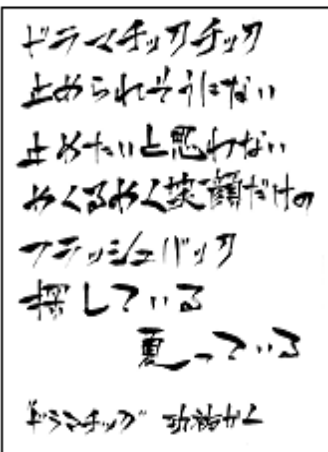 ドラマチックチック
止められそうにない
止めたいと思わない
めくるめく笑顔だけの
フラッシュバック
探している
夏っている
ドラマチック